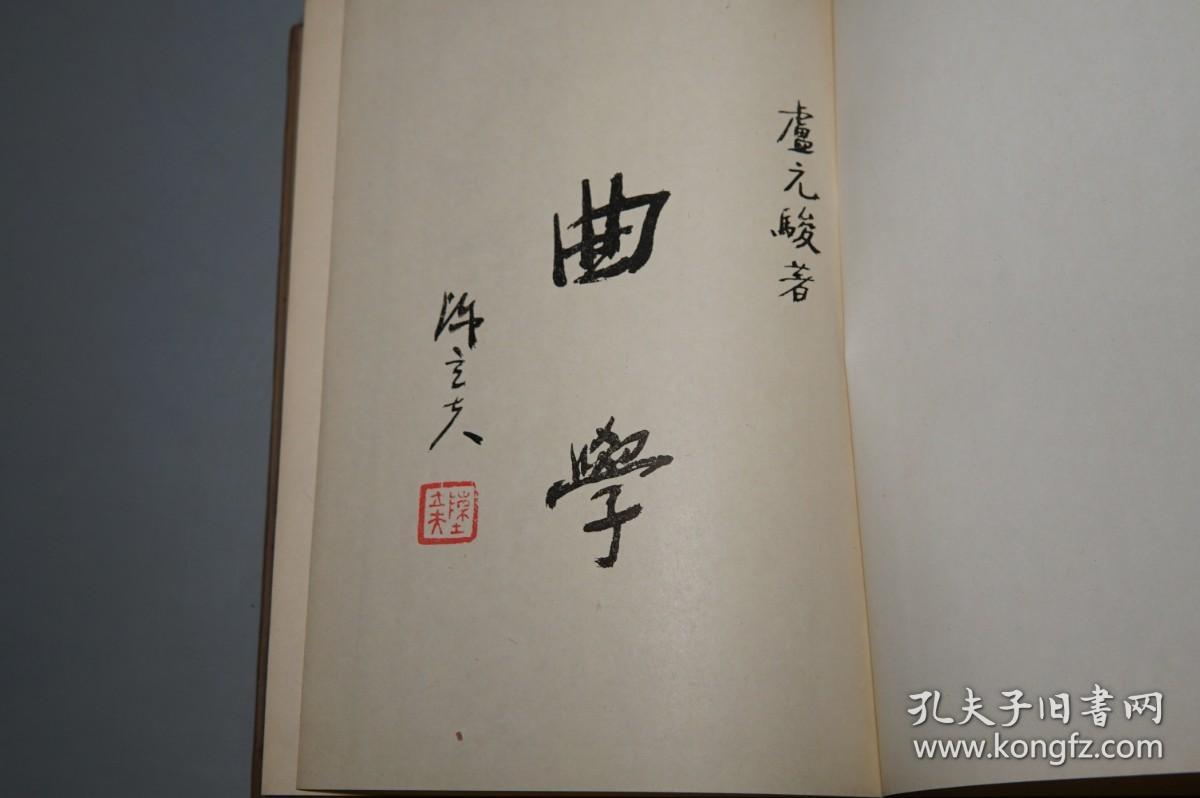 盧元駿著
曲學
陳立夫
孔夫子旧書网
www.kongfz.com